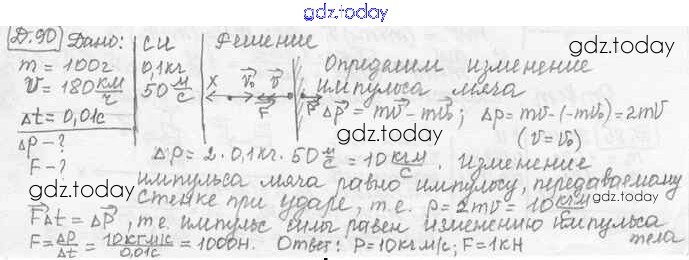 gdz.today
Д.90 Дано: СИ Решение
gdz.today
m = 100г 0,1кг
v = 180 км/ч 50 м/с
Δt = 0,01с
Δp - ?
F - ?
X v₀ v F F
Определим изменение
импульса мяча
Δp = mv - mv₀; Δp = mv - (-mv₀) = 2mv
(v = v₀)
gdz.today
Δp = 2·0,1кг·50 м/с = 10 кг·м/с. Изменение
импульса мяча равно импульсу, передаваемому
gdz.today
стенке при ударе, т.е. p = 2mv = 10 кг·м/с
gdz.today
FΔt = Δp, т.е. импульс силы равен изменению импульса
тела
F = Δp/Δt = 10кг·м/с/0,01с = 1000Н. Ответ: P = 10кг·м/с; F = 1кН